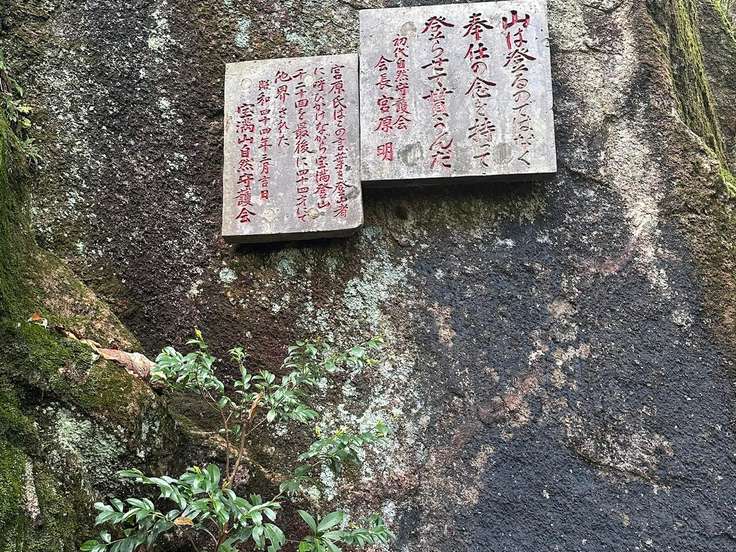 山は登るのではなく
奉仕の念を持って
登らせて貰うんだ
初代自然守護会
会長 宮原 明
宮原氏はこの言葉を登山者
に呼びかけながら宝満登山
千二十四を最後に四十四才して
他界された
昭和四十四年三月吉日
宝満山自然守護会